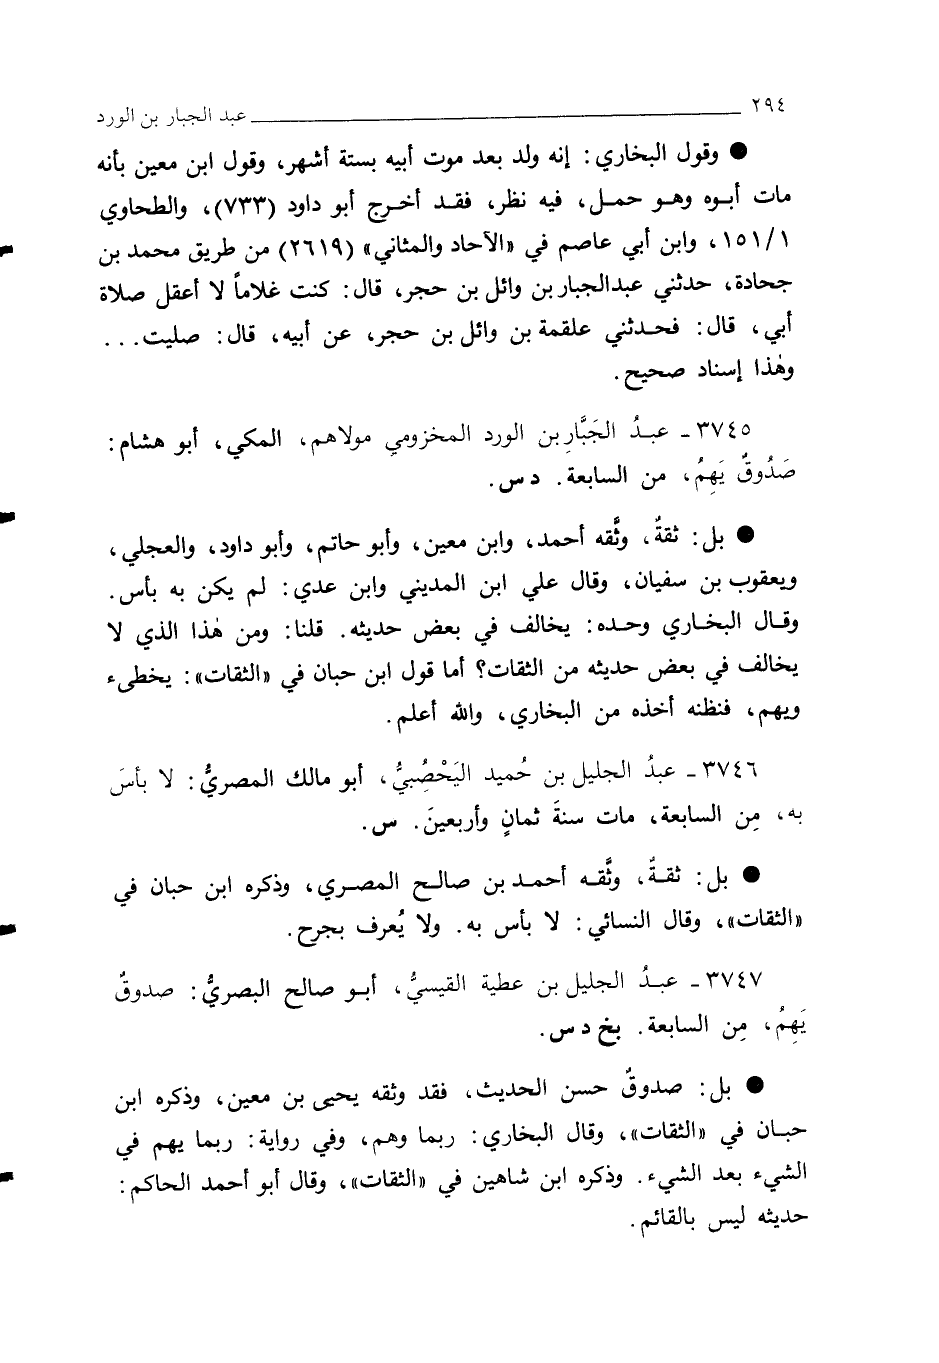 ٢٩٤ عبد الجبار بن الورد
● وقول البخاري: إنه ولد بعد موت أبيه بستة أشهر، وقول ابن معين بأنه
مات أبوه وهو حمل، فيه نظر، فقد أخرج أبو داود (٧٣٣)، والطحاوي
١٥١/١، وابن أبي عاصم في «الآحاد والمثاني» (٢٦١٩) من طريق محمد بن
جحادة، حدثني عبدالجبار بن وائل بن حجر، قال: كنت غلاماً لا أعقل صلاة
أبي، قال: فحدثني علقمة بن وائل بن حجر، عن أبيه، قال: صليت...
وهٰذا إسناد صحيح.
٣٧٤٥ ـ عبدُ الجَبَّارِ بن الورد المخزومي مولاهم، المكي، أبو هشام:
صَدُوقٌ يَهِمُ، من السابعة. د س.
● بل: ثقةٌ، وثَّقه أحمد، وابن معين، وأبو حاتم، وأبو داود، والعجلي،
ويعقوب بن سفيان، وقال علي ابن المديني وابن عدي: لم يكن به بأس.
وقال البخاري وحده: يخالف في بعض حديثه. قلنا: ومن هٰذا الذي لا
يخالف في بعض حديثه من الثقات؟ أما قول ابن حبان في «الثقات»: يخطىء
ويهم، فنظنه أخذه من البخاري، والله أعلم.
٣٧٤٦ ـ عبدُ الجليل بن حُميد اليَحْصِبيُّ، أبو مالك المصريُّ: لا بأسَ
به، مِن السابعة، مات سنةَ ثمانٍ وأربعينَ. س.
● بل: ثقةٌ، وثَّقه أحمد بن صالح المصري، وذكره ابن حبان في
«الثقات»، وقال النسائي: لا بأس به. ولا يُعرف بجرح.
٣٧٤٧ ـ عبدُ الجليل بن عطية القيسيُّ، أبو صالح البصريُّ: صدوقٌ
يَهِمُ، مِن السابعة. بخ د س.
● بل: صدوقٌ حسن الحديث، فقد وثقه يحيى بن معين، وذكره ابن
حبان في «الثقات»، وقال البخاري: ربما وهم، وفي رواية: ربما يهم في
الشيء بعد الشيء. وذكره ابن شاهين في «الثقات»، وقال أبو أحمد الحاكم:
حديثه ليس بالقائم.